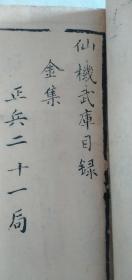 仙機武庫目録
金集
正兵二十一局